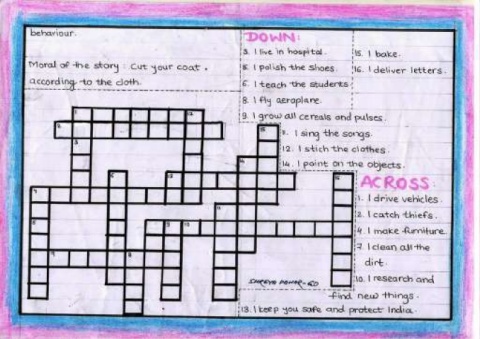 behaviour.
Moral of the story : Cut your coat
according to the cloth.
DOWN:
3. I live in hospital.
5. I polish the shoes.
6. I teach the students
8. I fly aeroplane.
9. I grow all cereals and pulses.
I sing the songs.
12. I stich the clothes.
14. I paint on the objects.
15. I bake.
16. I deliver letters.
ACROSS
1. I drive vehicles.
2. I catch thiefs.
4. I make furniture.
7. I clean all the
dirt.
10. I research and
find new things.
13. I keep you safe and protect India.